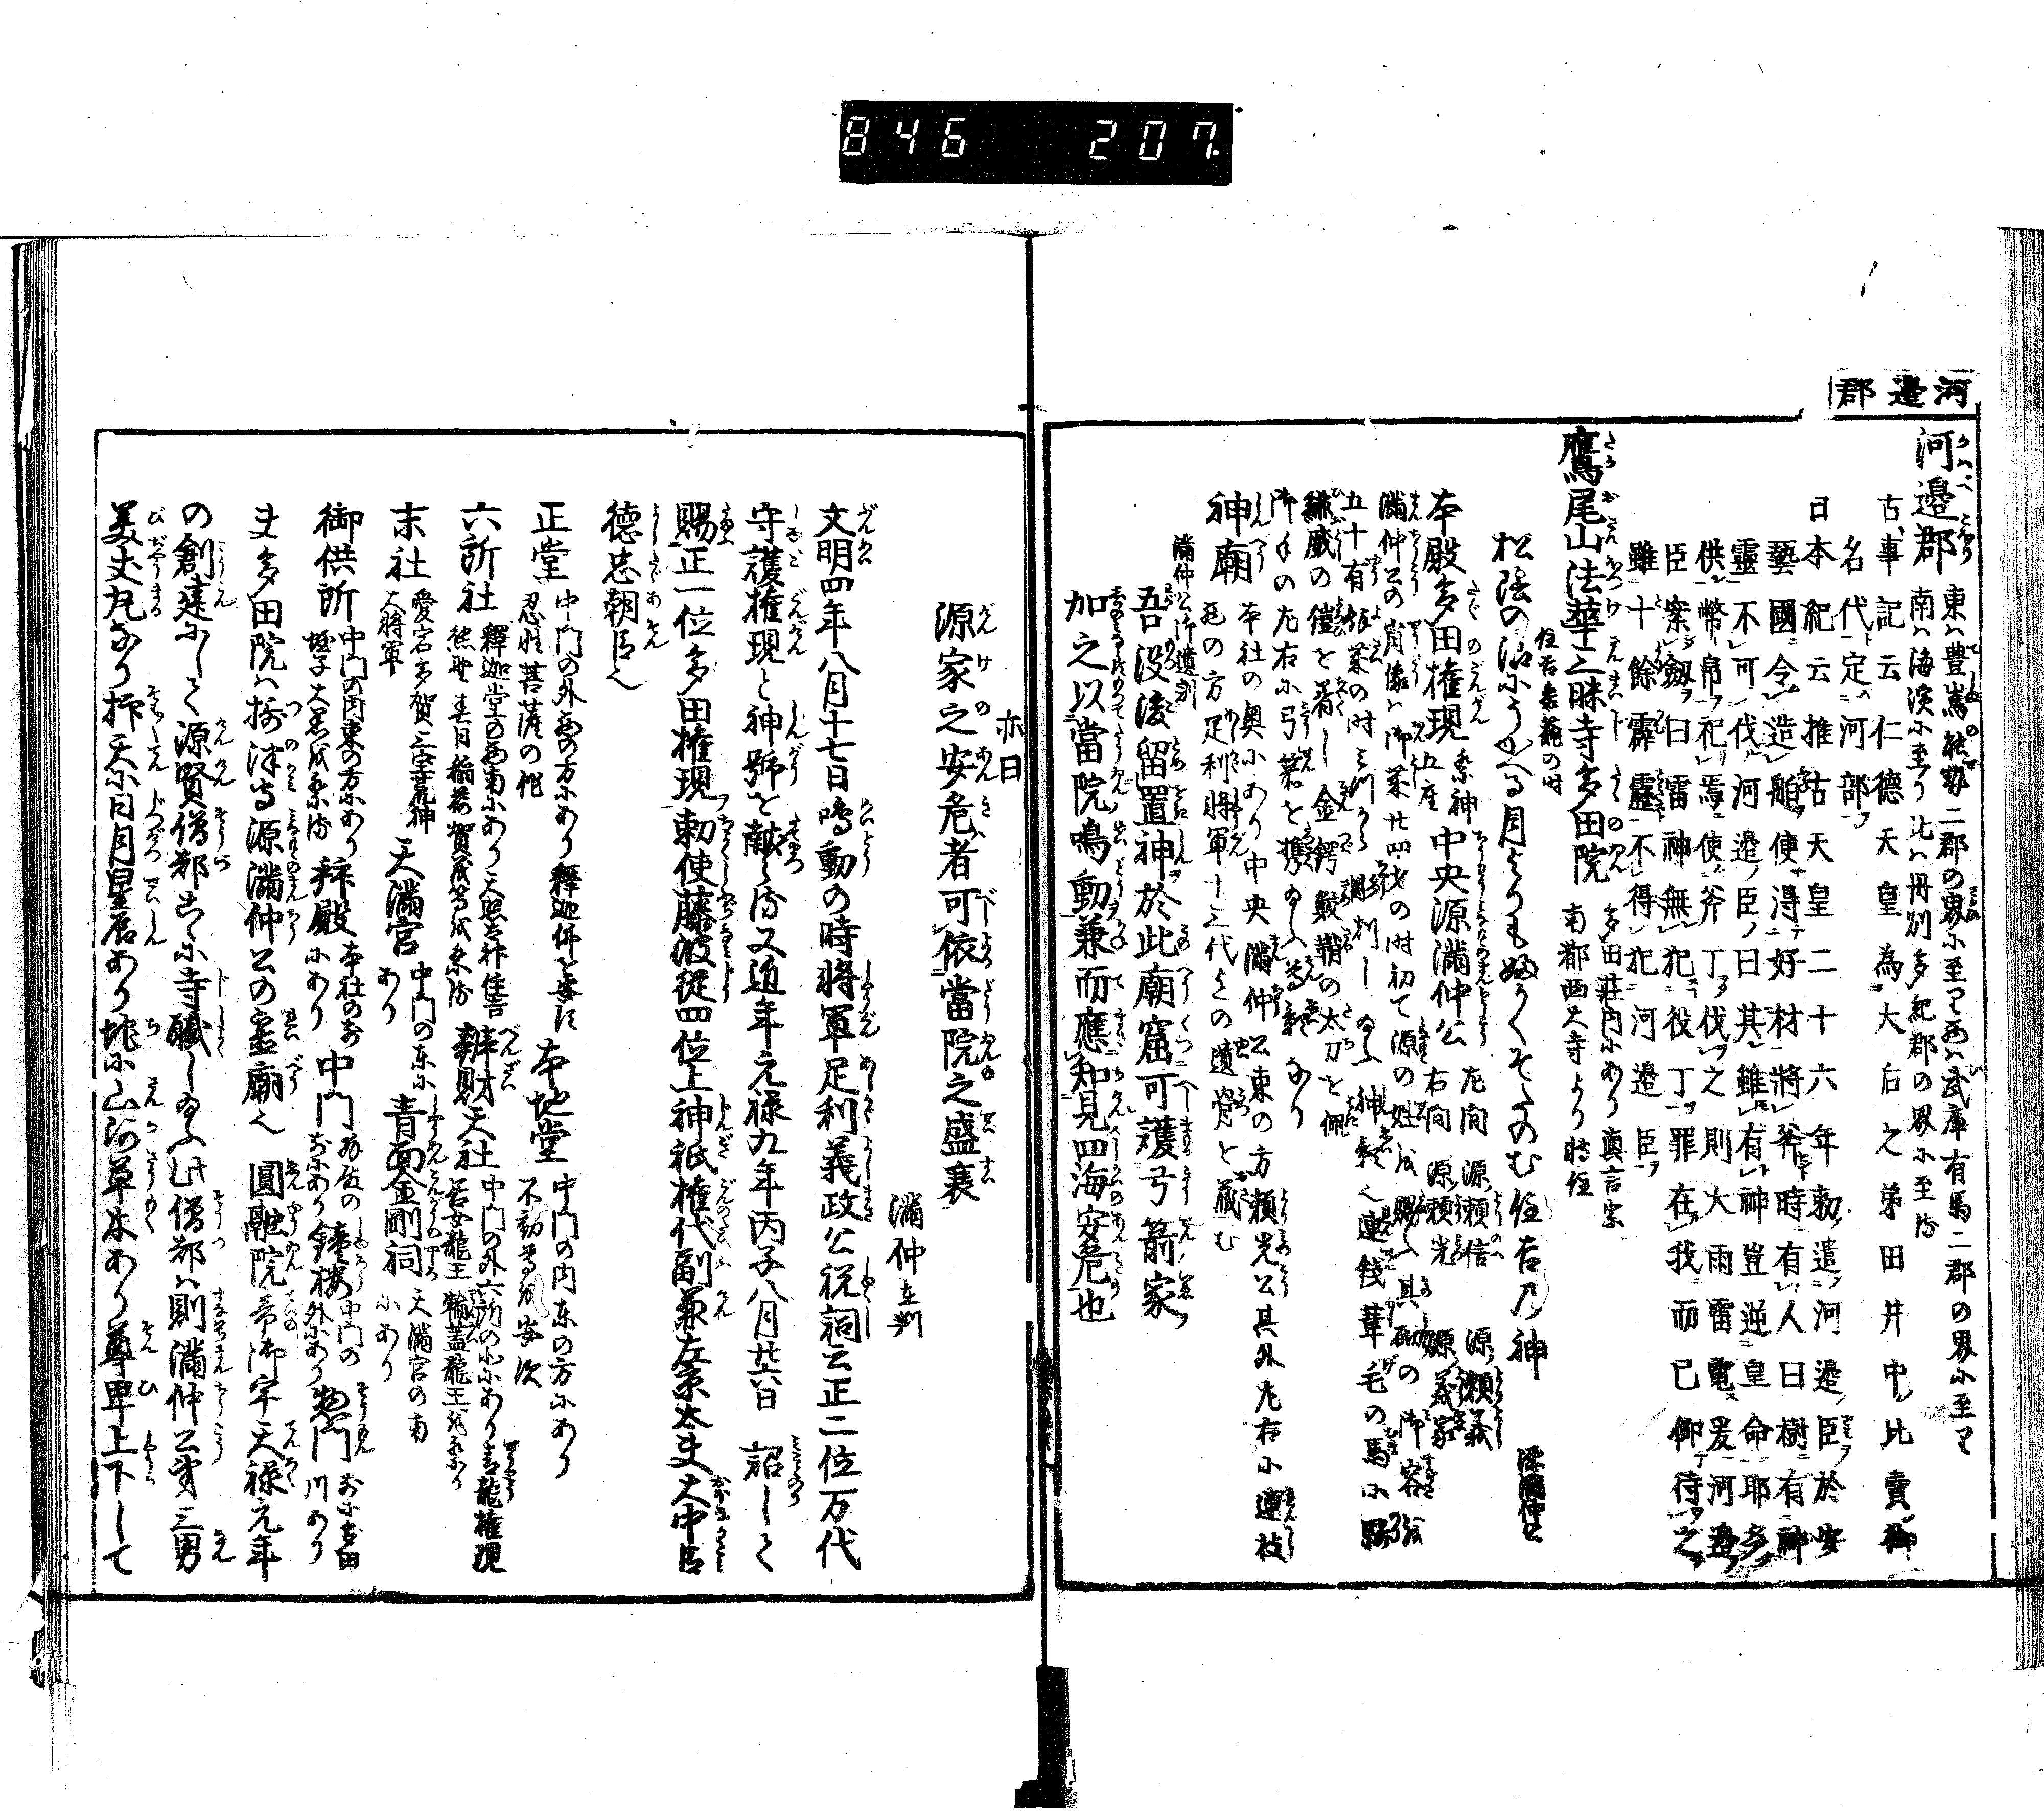 846 207
河邉郡
河邉郡 東ハ豊嶌能勢二郡の界に至り西ハ武庫有馬二郡の界に至り
南ハ海濱に至り北ハ丹州多紀郡の界に至る
古事記云仁德天皇為大后之弟田井中比賣御
名代定河部
日本紀云推古天皇二十六年勅遣河邉臣於安
藝國令造舶使淂好材將伐時有人曰樹有神
靈不可伐河邉臣曰其雖有神豈逆皇命耶多
供幣帛祀焉使斧丁伐之則大雨雷電爰河邉
臣案劔曰雷神無犯役丁罪在我而已仰待之
雖十餘霹靂不得犯河邉臣
鷹尾山法華三昧寺多田院 多田莊内にあり真言宗
南都西大寺より持住
住吉参籠の時
松陰の に る月よりも く たのむ住吉乃神 源滿仲公
本殿多田権現 祭神五座 中央源滿仲公 左間 源頼信 源頼義
右間 源頼光 源義家
滿仲公の肖像ハ御歳廿四才の時初て源の姓を賜ふ其砌の御容
五十有 歳の時 彫刻し 神影 連錢葦毛の馬に
緋威の鎧を着し金鍔鮫鞘の太刀を佩
御手の左右に弓箭を携 ふ尊影なり
神廟 本社の奥にあり中央滿仲公東の方頼光公其外左右に連枝
の方足利將軍十三代まての遺骨を蔵む
滿仲公御遺訓
吾没後留置神於此廟窟可護弓箭家
加之以當院鳴動兼而應知見四海安危也
亦曰
源家之安危者可依當院之盛衰
滿仲在判
文明四年八月十七日鳴動の時將軍足利義政公祝詞云正二位万代
守護権現と神號を献らる又近年元禄九年丙子八月廿六日 詔して
賜正一位多田権現勅使藤波従四位上神祇権代副兼左京太夫大中臣
德忠朝臣也
正堂 中門の外西の方にあり釋迦佛を安に
忍性菩薩の作
本地堂 中門の内东の方にあり
不動尊を安す
六所社 釋迦堂の西南にあり天照太神住吉
熊野春日稲荷賀茂等を祭る
辨財天社 中門の外六所の北にあり青龍権現
善女龍王輪蓋龍王を祭る
末社 愛宕多賀三宝荒神
大將軍
天滿宮 中門の东に
あり
青面金剛祠 天滿宮の南
にあり
御供所 中門の内東の方にあり
大黒を祭る
拜殿 本社の前
にあり
中門 拜殿の
前にあり
鐘楼 中門の
外にあり
惣門 前に多田
川あり
夫多田院ハ摂津守源滿仲公の霊廟也 圓融院帝御宇天禄元年
の創建にして源賢僧都こゝに寺職し ふ此僧都ハ則滿仲公第三男
美丈丸なり抑天に日月星辰あり地に山河草木あり尊卑上下して